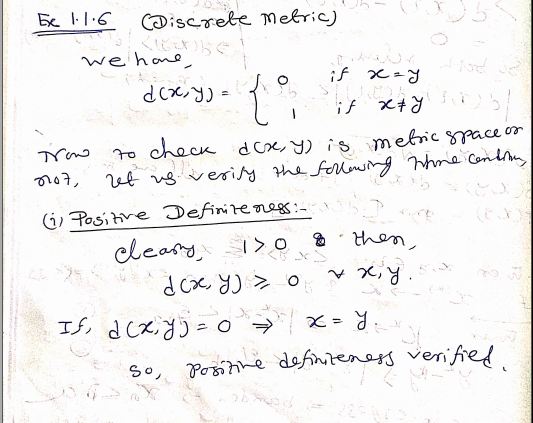 Ex 1.1.6 (Discrete Metric)
we have,
d(x,y) = { 0 if x=y
1 if x≠y
Now to check d(x,y) is metric space or
not, let us verify the following three conditions
(i) Positive Definiteness:-
clearly, 1>0 & then,
d(x,y) ≥ 0 ∀ x,y.
If, d(x,y) = 0 ⇒ x = y.
So, positive definiteness verified.